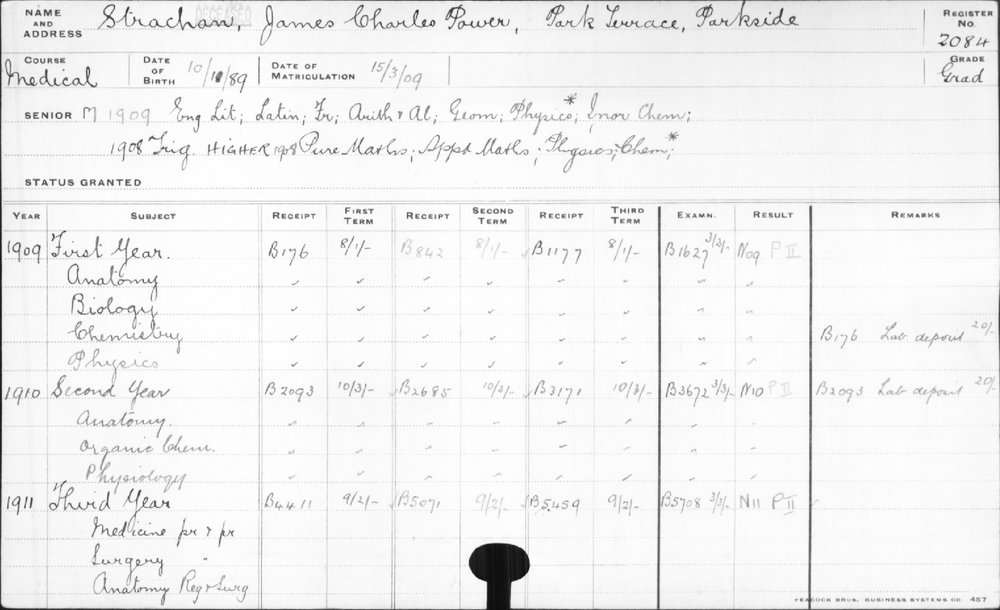 NAME AND ADDRESS Strachan, James Charles Power, Park Terrace, Parkside REGISTER No. 2084
DECEASED
COURSE Medical DATE OF BIRTH 10/11/89 DATE OF MATRICULATION 15/3/09 GRADE Grad
SENIOR M 1909 Eng Lit; Latin; Fr; Arith & Al; Geom; Physics*; Inor Chem;
1908 Trig. HIGHER 1908 Pure Maths; Appd Maths; Physics; Chem*;
STATUS GRANTED
YEAR SUBJECT RECEIPT FIRST TERM RECEIPT SECOND TERM RECEIPT THIRD TERM EXAMN. RESULT REMARKS
1909 First Year. B176 8/1/- B842 8/1/- B1177 8/1/- B1627 3/3/- N09 P II
Anatomy " " " " " " " "
Biology " " " " " " " "
Chemistry " " " " " " " " B176 Lab deposit 20/-
Physics " " " " " " " "
1910 Second Year B2093 10/3/- B2685 10/3/- B3171 10/3/- B3672 3/3/- N10 P II B2093 Lab deposit 20/-
Anatomy. " " " " " " " "
Organic Chem. " " " " " " " "
Physiology " " " " " " " "
1911 Third Year B4411 9/2/- B5071 9/2/- B5459 9/2/- B5708 3/3/- N11 P II
Medicine pr & pr
Surgery "
Anatomy Reg & Surg
PEACOCK BROS. BUSINESS SYSTEMS CO 457